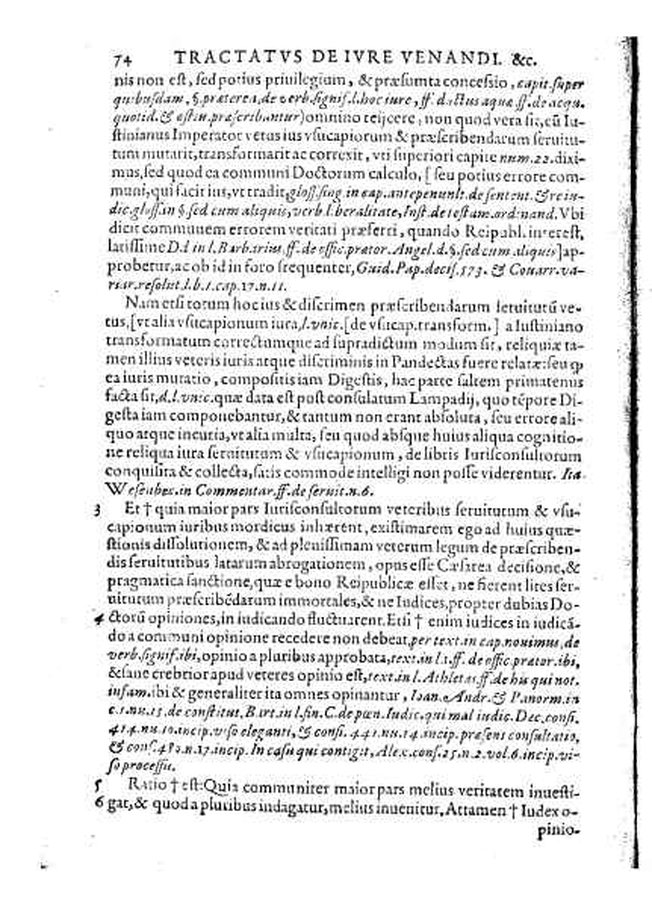 74 TRACTATVS DE IVRE VENANDI. &c.
nis non est, sed potius priuilegium, & præsumta concessio, capit. super
quibusdam, §. præterea, de verb. signif. l. hoc iure, ff. ductus aquæ ff. de acqu.
quotid. & æstiu. præscribuntur) omnino reijcere, non quod vera sit, cũ Iu-
stinianus Imperator vetus ius vsucapionum & præscribendarum seruitu-
tum mutarit, transformarit ac correxit, vti superiori capite num. 22. dixi-
mus, sed quod ea communi Doctorum calculo, [ seu potius errore com-
muni, qui facit ius, vt tradit, gloss. sing. in cap. antepenult. de sentent. & re iu-
dic. gloss. in §. sed cum aliquis, verb. liberalitate, Inst. de testam. ordinand. Vbi
dicit communem errorem veritati præferri, quando Reipubl. interest,
latissime D d. in l. Barbarius, ff. de offic. prætor. Angel. d. §. sed cum aliquis] ap-
probetur, ac ob id in foro frequenter, Guid. Pap. decis. 573. & Couarr. va-
riar. resolut. l. b. 1. cap. 17. n. 11.
Nam etsi totum hoc ius & discrimen præscribendarum seruitutũ ve-
tus, [vt alia vsucapionum iura, l. vnic. [de vsucap. transform. ] a Iustiniano
transformatum correctumque ad supradictum modum sit, reliquiæ ta-
men illius veteris iuris atque discriminis in Pandectas fuere relatæ: seu ꝙ
ea iuris mutatio, compositis iam Digestis, hac parte saltem primatenus
facta sit, d. l. vnic. quæ data est post consulatum Lampadij, quo tẽpore Di-
gesta iam componebantur, & tantum non erant absoluta, seu errore ali-
quo atque incuria, vt alia multa, seu quod absque huius aliqua cognitio-
ne reliqua iura seruitutum & vsucapionum, de libris Iurisconsultorum
conquisita & collecta, satis commode intelligi non posse viderentur. Ita
Wesenbec. in Commentar. ff. de seruit. n. 6.
3 Et † quia maior pars Iurisconsultorum veteribus seruitutum & vsu-
capionum iuribus mordicus inhærent, existimarem ego ad huius quæ-
stionis dissolutionem, & ad plenissimam veterum legum de præscriben-
dis seruitutibus latarum abrogationem, opus esse Cæsarea decisione, &
pragmatica sanctione, quæ e bono Reipublicæ esset, ne fierent lites ser-
uitutum præscribẽdarum immortales, & ne Iudices, propter dubias Do-
4 ctorũ opiniones, in iudicando fluctuarent. Etsi † enim iudices in iudicã-
do a communi opinione recedere non debeat, per text. in cap. nouimus, de
verb. signif. ibi, opinio a pluribus approbata, text. in l. 1. ff. de offic. prætor. ibi,
& sane crebrior apud veteres opinio est, text. in l. Athletas ff. de his qui not.
infam. ibi & generaliter ita omnes opinantur, Ioan. Andr. & Panorm. in
c. 1. nu. 15. de constitut. Bart. in l. fin. C. de pœn. Iudic. qui mal iudic. Dec. consi.
414. nu. 10. incip. viso eleganti, & consi. 441. nu. 14. incip. præsens consultatio,
& cons. 489. n. 17. incip. In casu qui contigit, Alex. cons. 25. n. 2. vol. 6. incip. vi-
so processu.
5 Ratio † est: Quia communiter maior pars melius veritatem inuesti-
6 gat, & quod a pluribus indagatur, melius inuenitur. Attamen † Iudex o-
pinio-